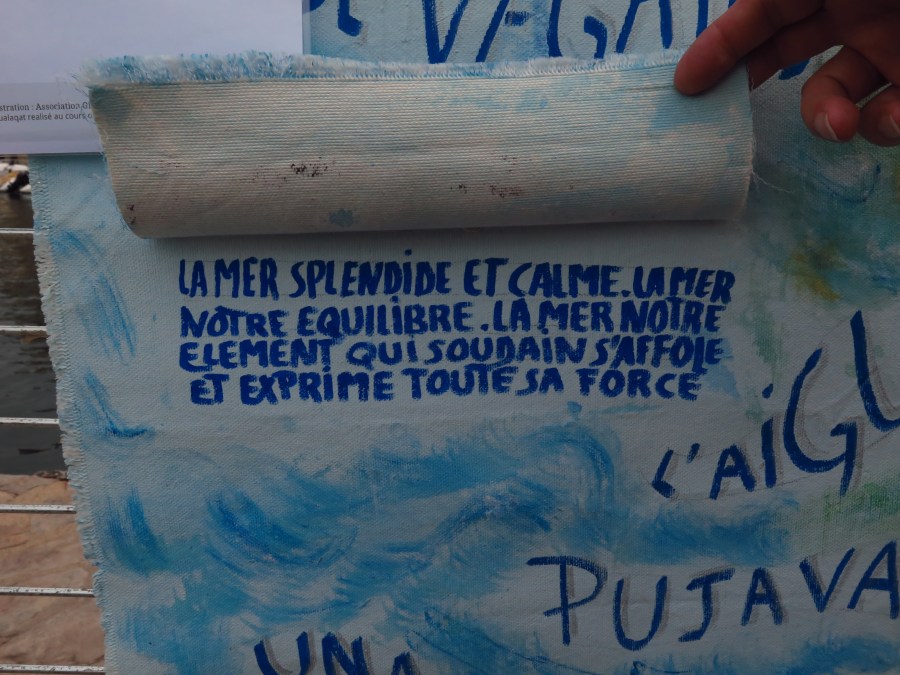 VAGA
stration : Association
ualaqat realisé au cours
LA MER SPLENDIDE ET CALME. LA MER
NOTRE EQUILIBRE. LA MER NOTRE
ELEMENT QUI SOUDAIN S'AFFOLE
ET EXPRIME TOUTE SA FORCE
L'AIGU
PUJAVA
UNA